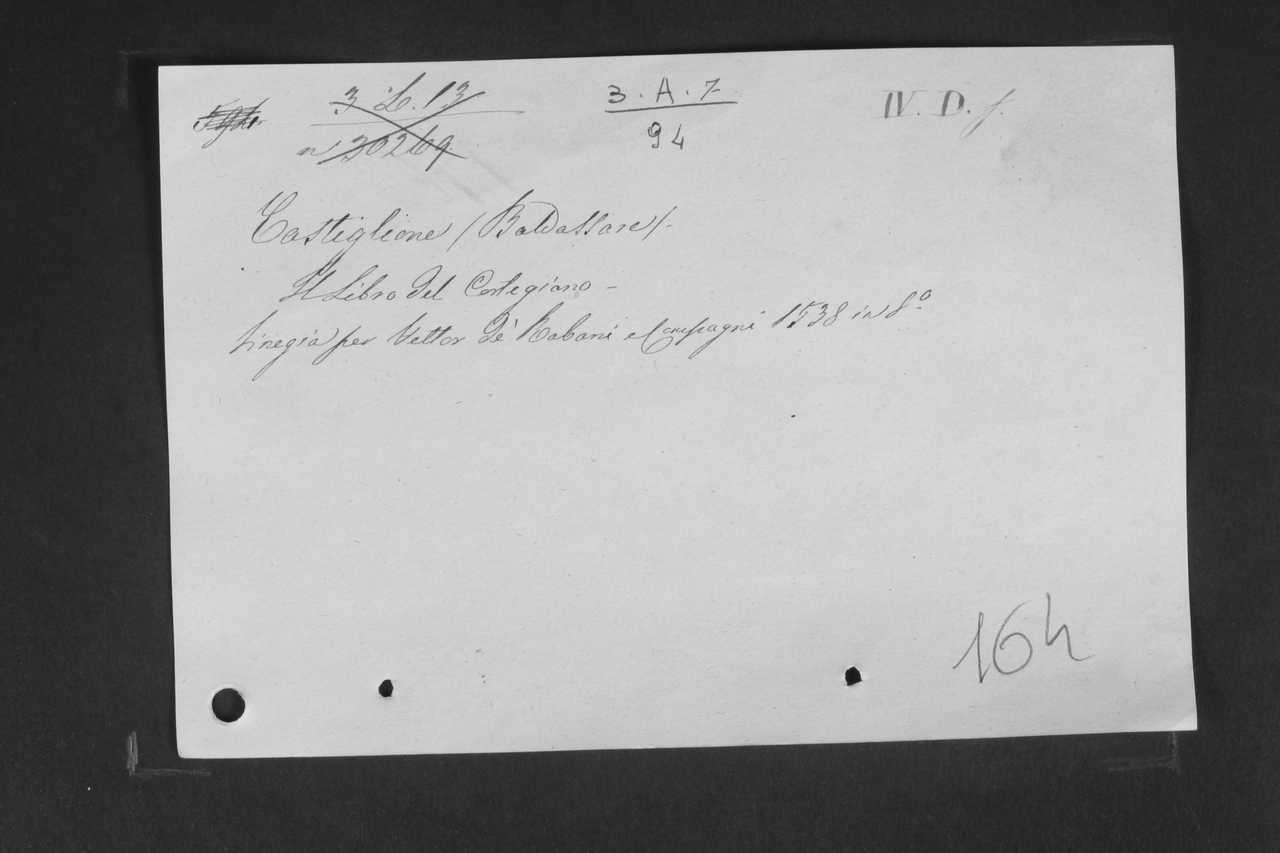 3 L. 13
n 30269
3. A. 7
94
IV. D. f.
Castiglione (Baldassare).
Il Libro del Cortegiano -
Vinegia per Vettor de' Rabani e Compagni 1538 in 8º
164